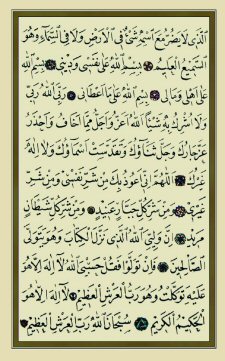 الَّذِي لَا يَضُرُّ مَعَ اسْمِهِ شَيْءٌ فِي الْأَرْضِ وَلَا فِي السَّمَاءِ وَهُوَ
السَّمِيعُ الْعَلِيمُ بِسْمِ اللَّهِ عَلَى نَفْسِي وَدِينِي بِسْمِ اللَّهِ
عَلَى أَهْلِي وَمَالِي بِسْمِ اللَّهِ عَلَى مَا أَعْطَانِي رَبِّي اللَّهُ رَبِّي
وَلَا أُشْرِكُ بِهِ شَيْئًا اللَّهُ أَعَزُّ وَأَجَلُّ مِمَّا أَخَافُ وَأَحْذَرُ
عَزَّ جَارُكَ وَجَلَّ ثَنَاؤُكَ وَتَقَدَّسَتْ أَسْمَاؤُكَ وَلَا إِلَهَ
غَيْرُكَ اللَّهُمَّ إِنِّي أَعُوذُ بِكَ مِنْ شَرِّ نَفْسِي وَمِنْ شَرِّ
غَيْرِي وَمِنْ شَرِّ كُلِّ جَبَّارٍ عَنِيدٍ وَمِنْ شَرِّ كُلِّ شَيْطَانٍ
مَرِيدٍ إِنَّ وَلِيِّيَ اللَّهُ الَّذِي نَزَّلَ الْكِتَابَ وَهُوَ يَتَوَلَّى
الصَّالِحِينَ فَإِنْ تَوَلَّوْا فَقُلْ حَسْبِيَ اللَّهُ لَا إِلَهَ إِلَّا هُوَ
عَلَيْهِ تَوَكَّلْتُ وَهُوَ رَبُّ الْعَرْشِ الْعَظِيمِ لَا إِلَهَ إِلَّا هُوَ
الْحَكِيمُ الْكَرِيمُ سُبْحَانَ اللَّهِ رَبِّ الْعَرْشِ الْعَظِيمِ